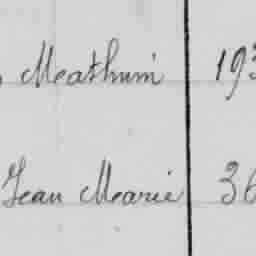 Mathurin 193
Jean Marie 36